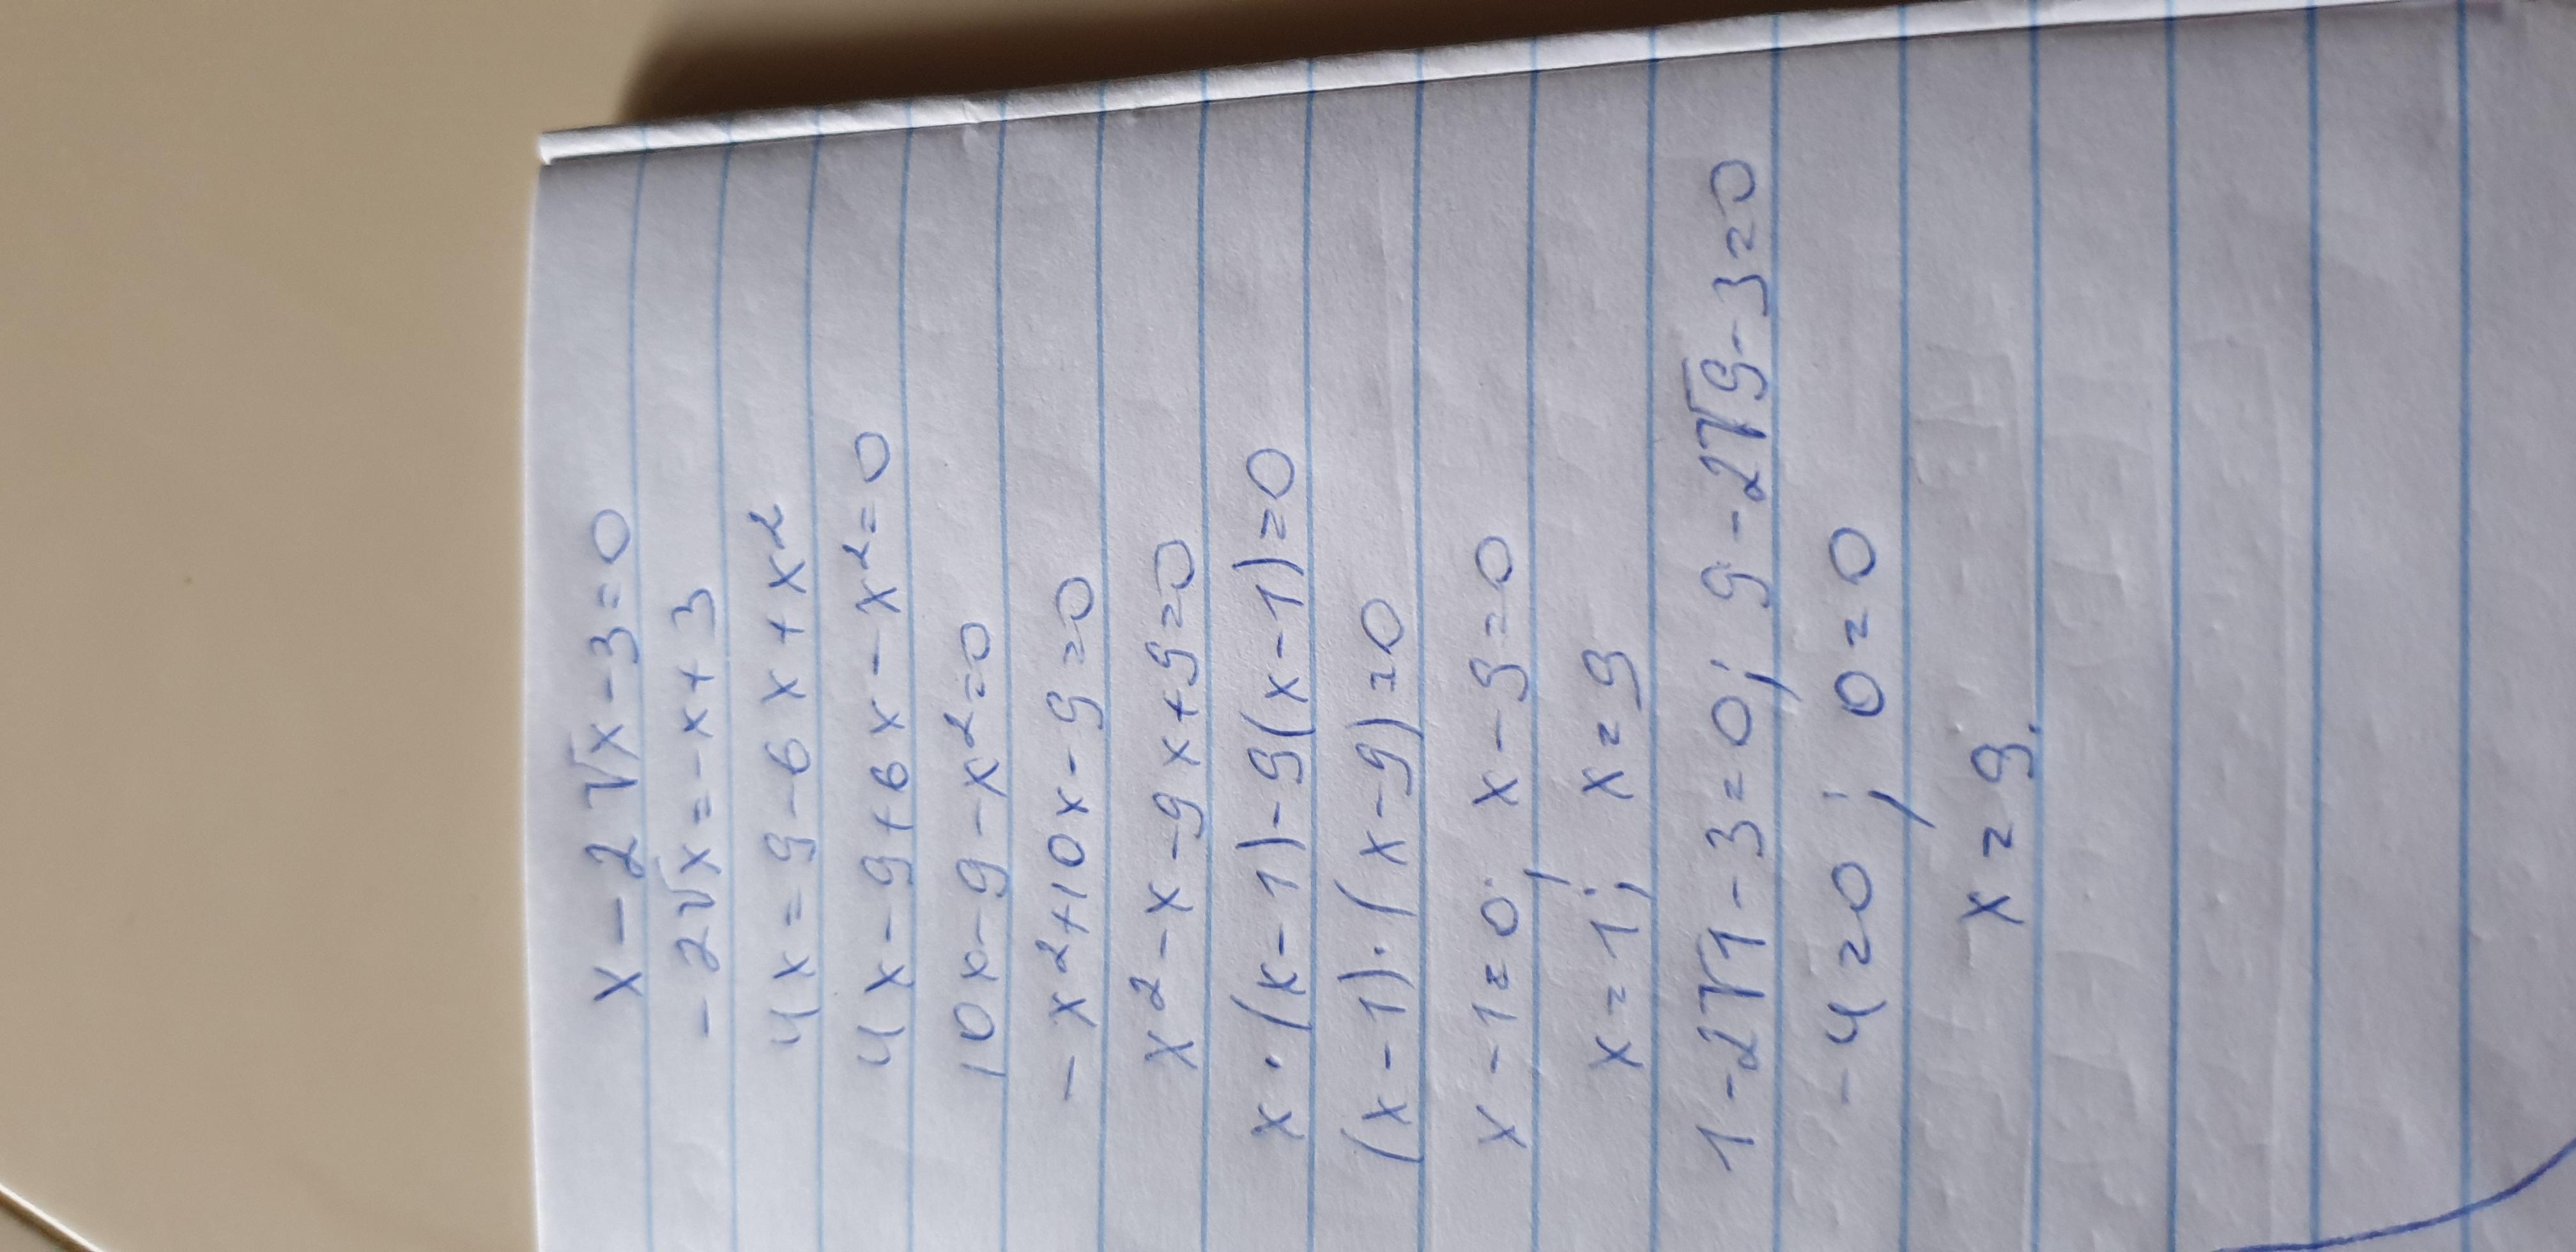 x-2√x-3=0
-2√x=-x+3
4x=9-6x+x²
4x-9+6x-x²=0
10x-9-x²=0
-x²+10x-9=0
x²-x-9x+9=0
x·(x-1)-9(x-1)=0
(x-1)·(x-9)=0
x-1=0; x-9=0
x=1; x=9
1-2√1-3=0; 9-2√9-3=0
-4=0; 0=0
x=9.